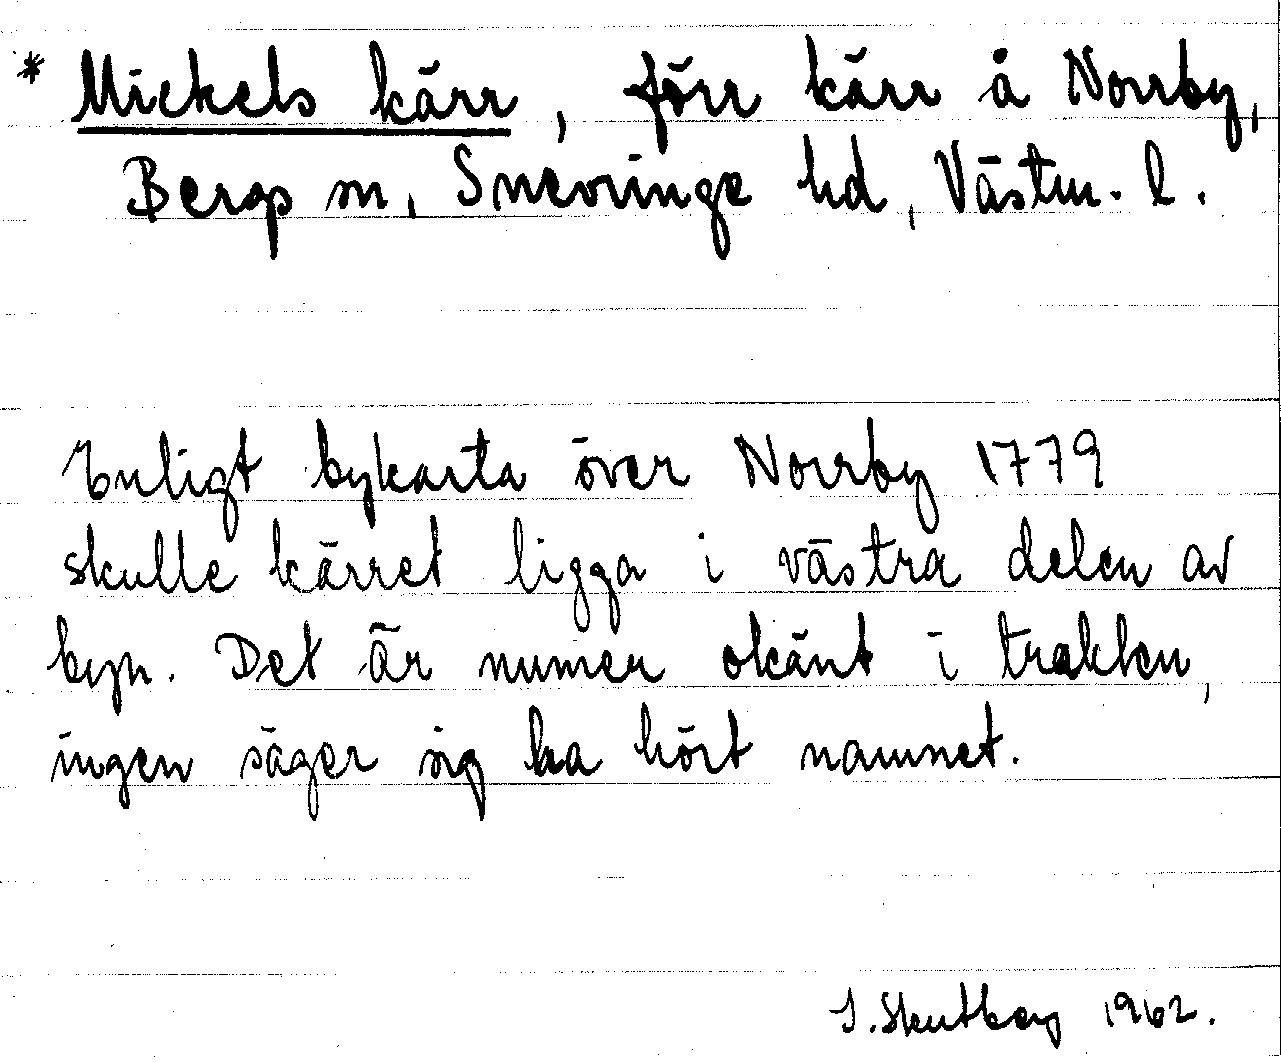 * Mickels kärr, förr kärr å Norrby,
Bergs sn, Snevringe hd, Västm. l.
Enligt bykarta över Norrby 1779
skulle kärret ligga i västra delen av
byn. Det är numer okänt i trakten,
ingen säger sig ha hört namnet.
S. Skutberg 1962.